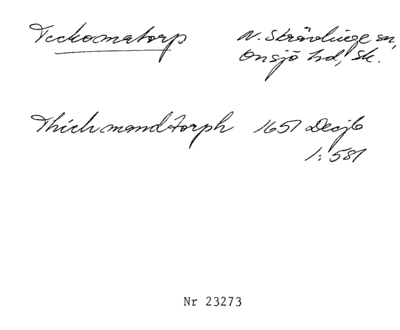 Teckomatorp N. Skrävlinge sn,
Onsjö hd, Sk.
Thichmandtorph 1651 Decjb
1:581
Nr 23273